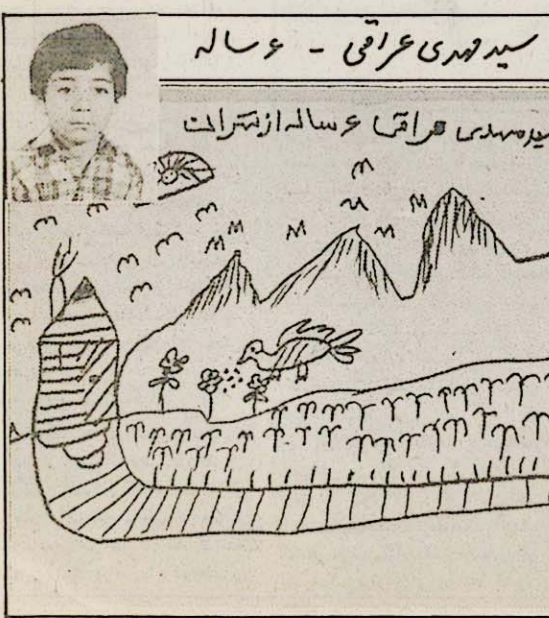 سید مهدی عراقی - ۶ ساله
سیدمهدی عراقی ۶ ساله از